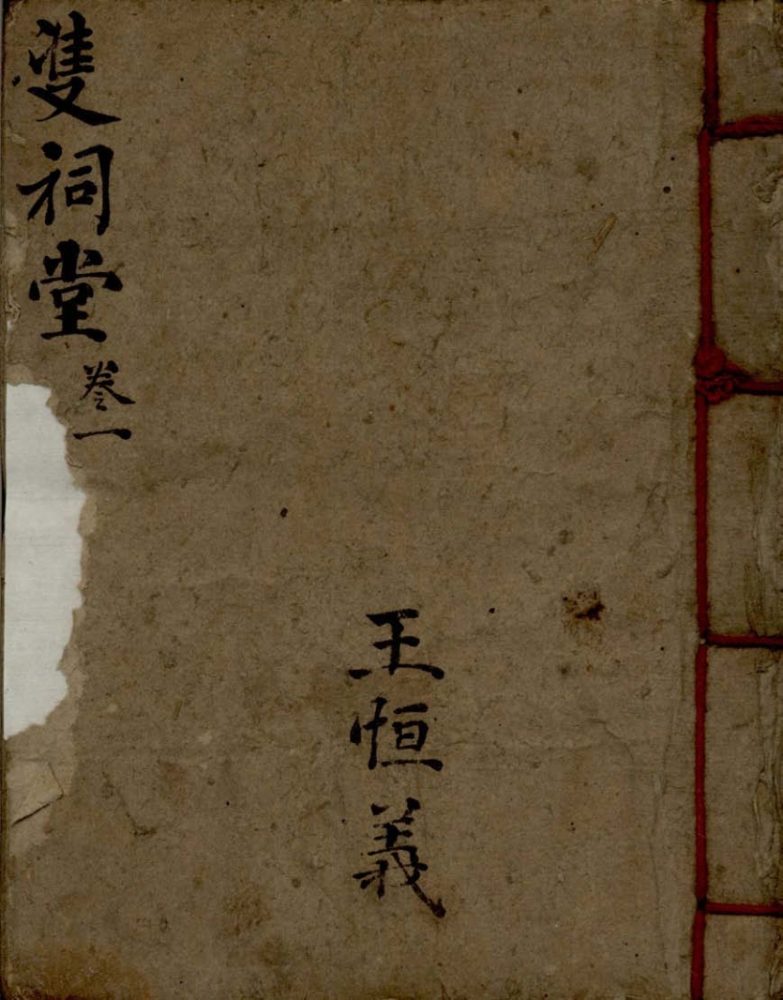 雙祠堂 卷一
王恒義